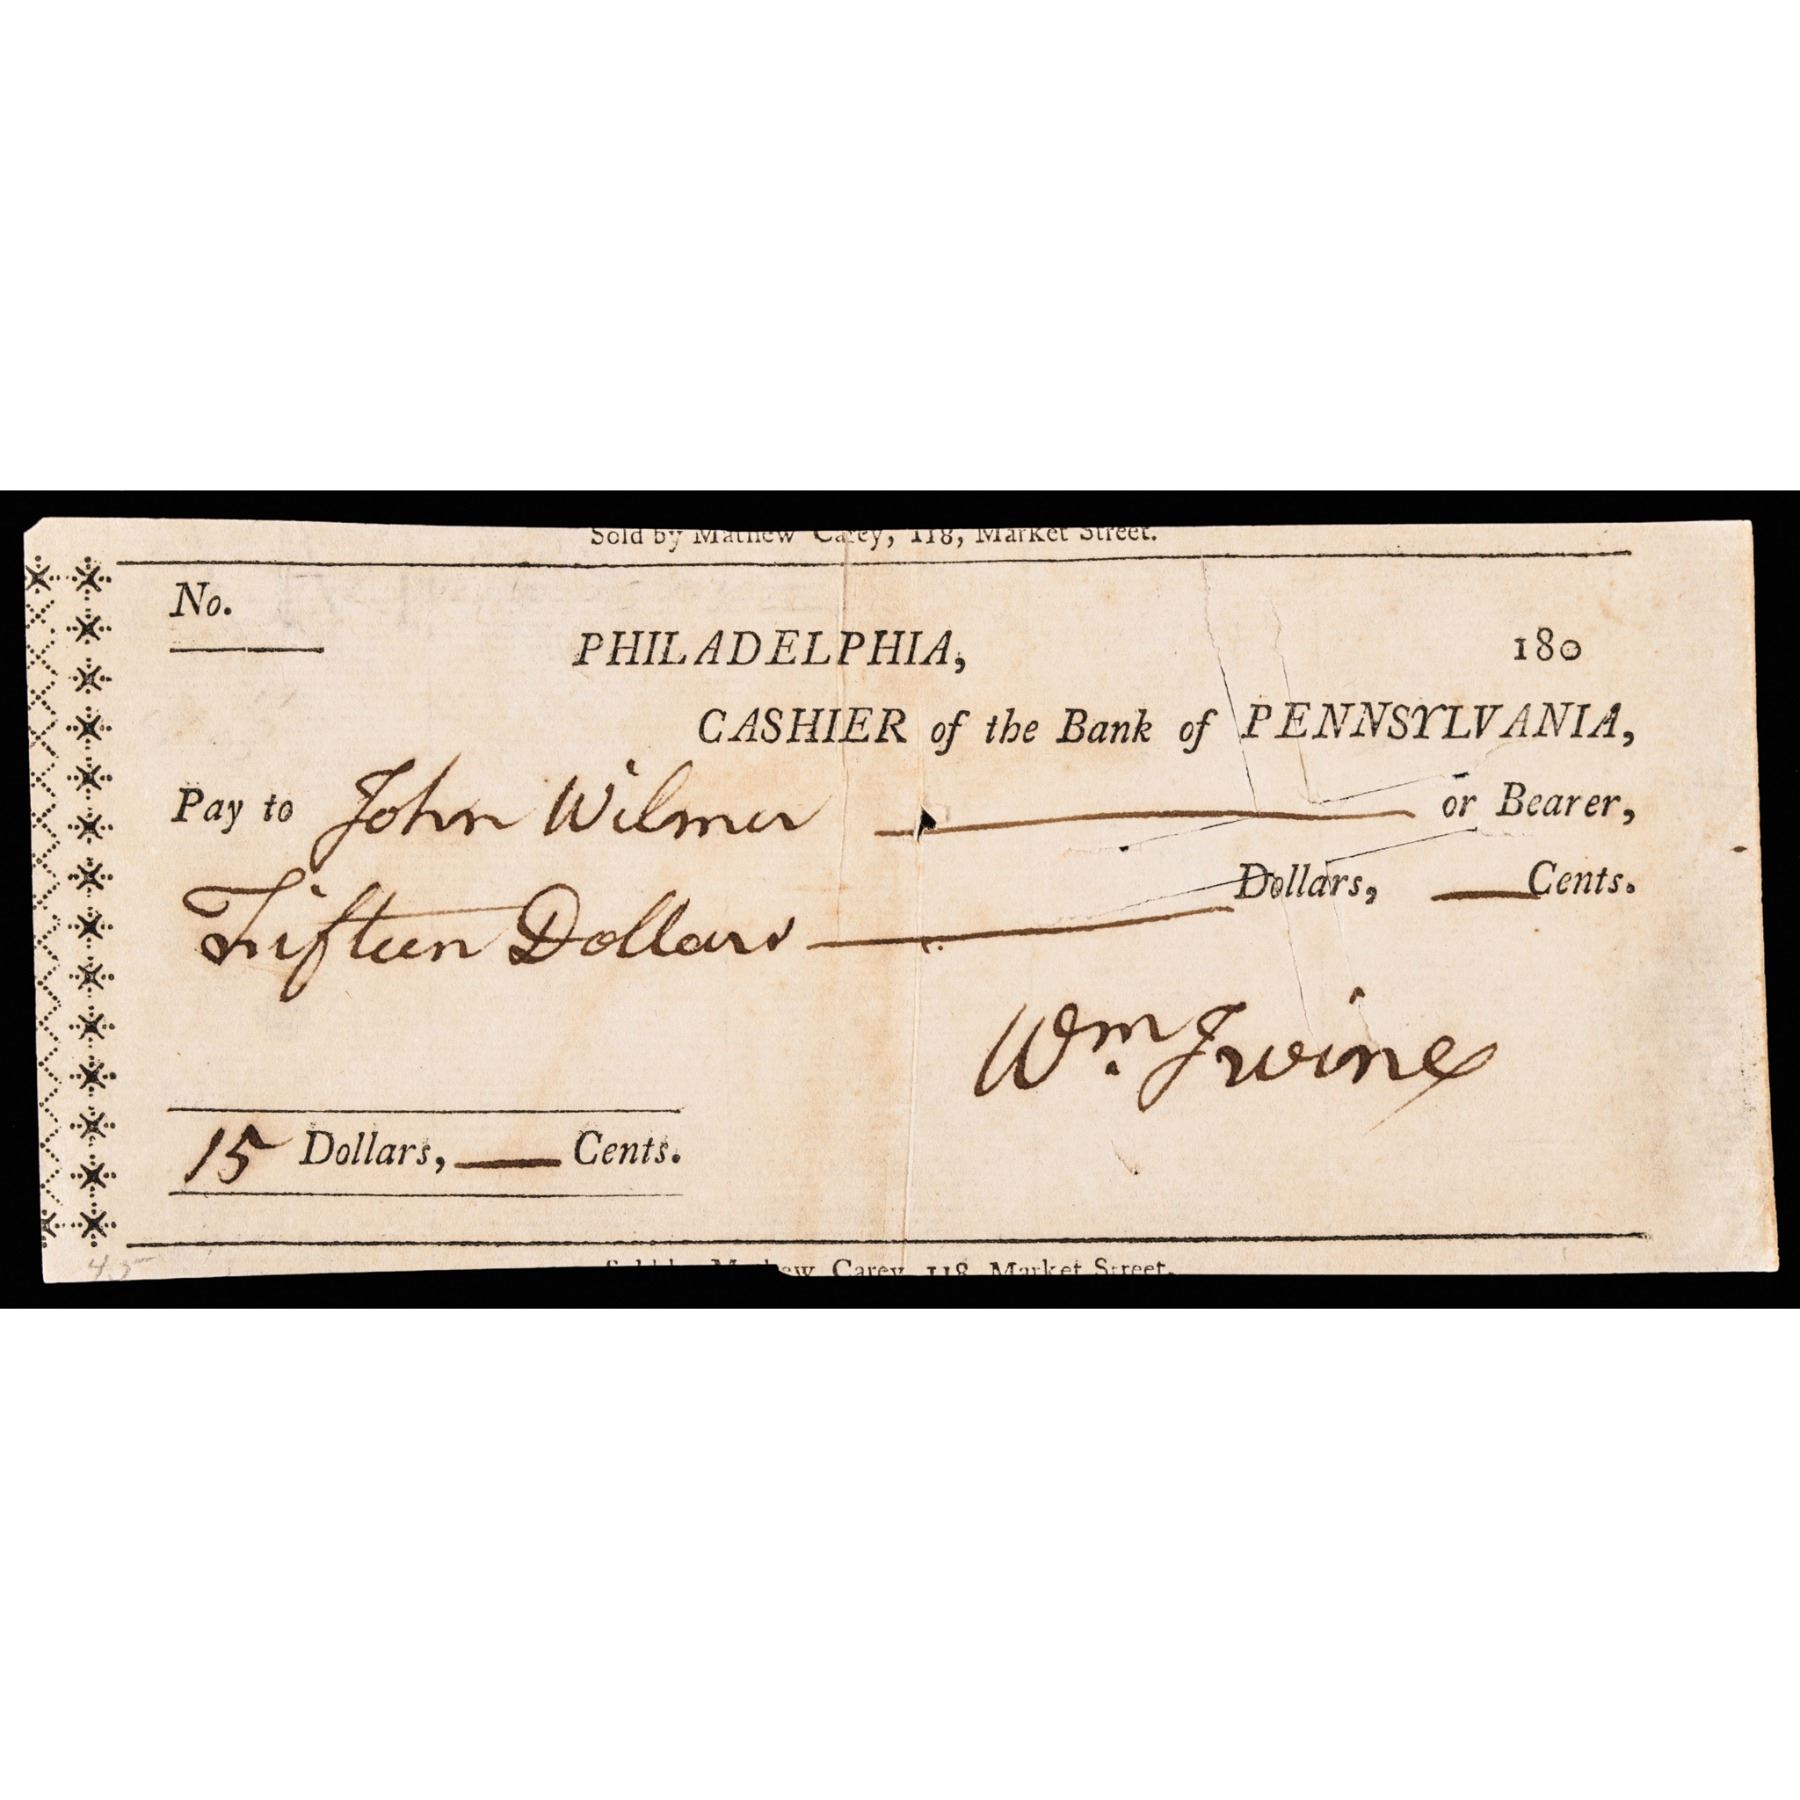 Sold by Mathew Carey, 118, Market Street.
No.
PHILADELPHIA, 180
CASHIER of the Bank of PENNSYLVANIA,
Pay to John Wilmer or Bearer,
Dollars, Cents.
Fifteen Dollars
Wm Irvine
15 Dollars, Cents.
Sold by Mathew Carey, 118, Market Street.
4.5